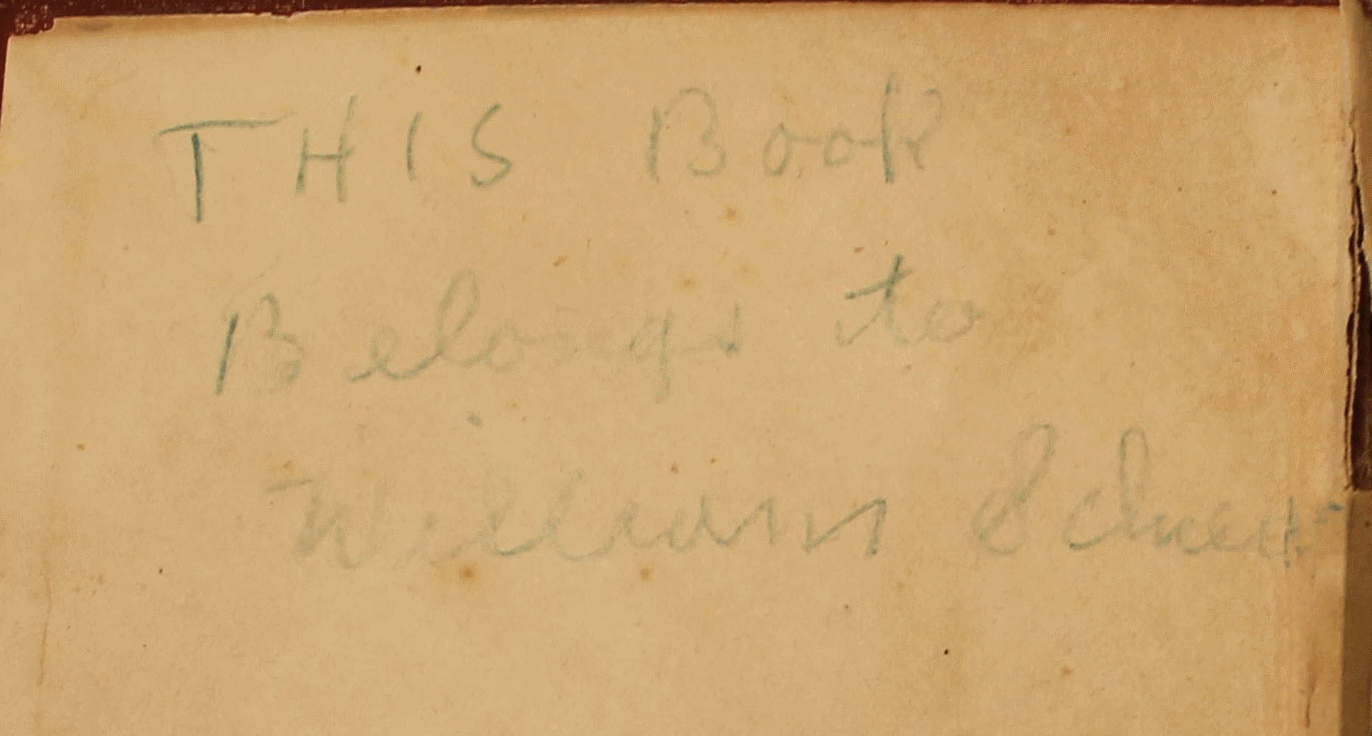 THIS Book
Belongs to
William